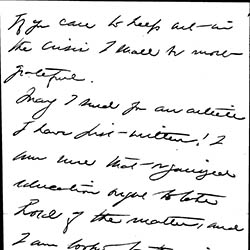 If you care to keep act-in
the crisis I shall be most
grateful.
May I send you an article
I have just written? I
am sure that organized
education ought to take
hold of the matter, and
I am